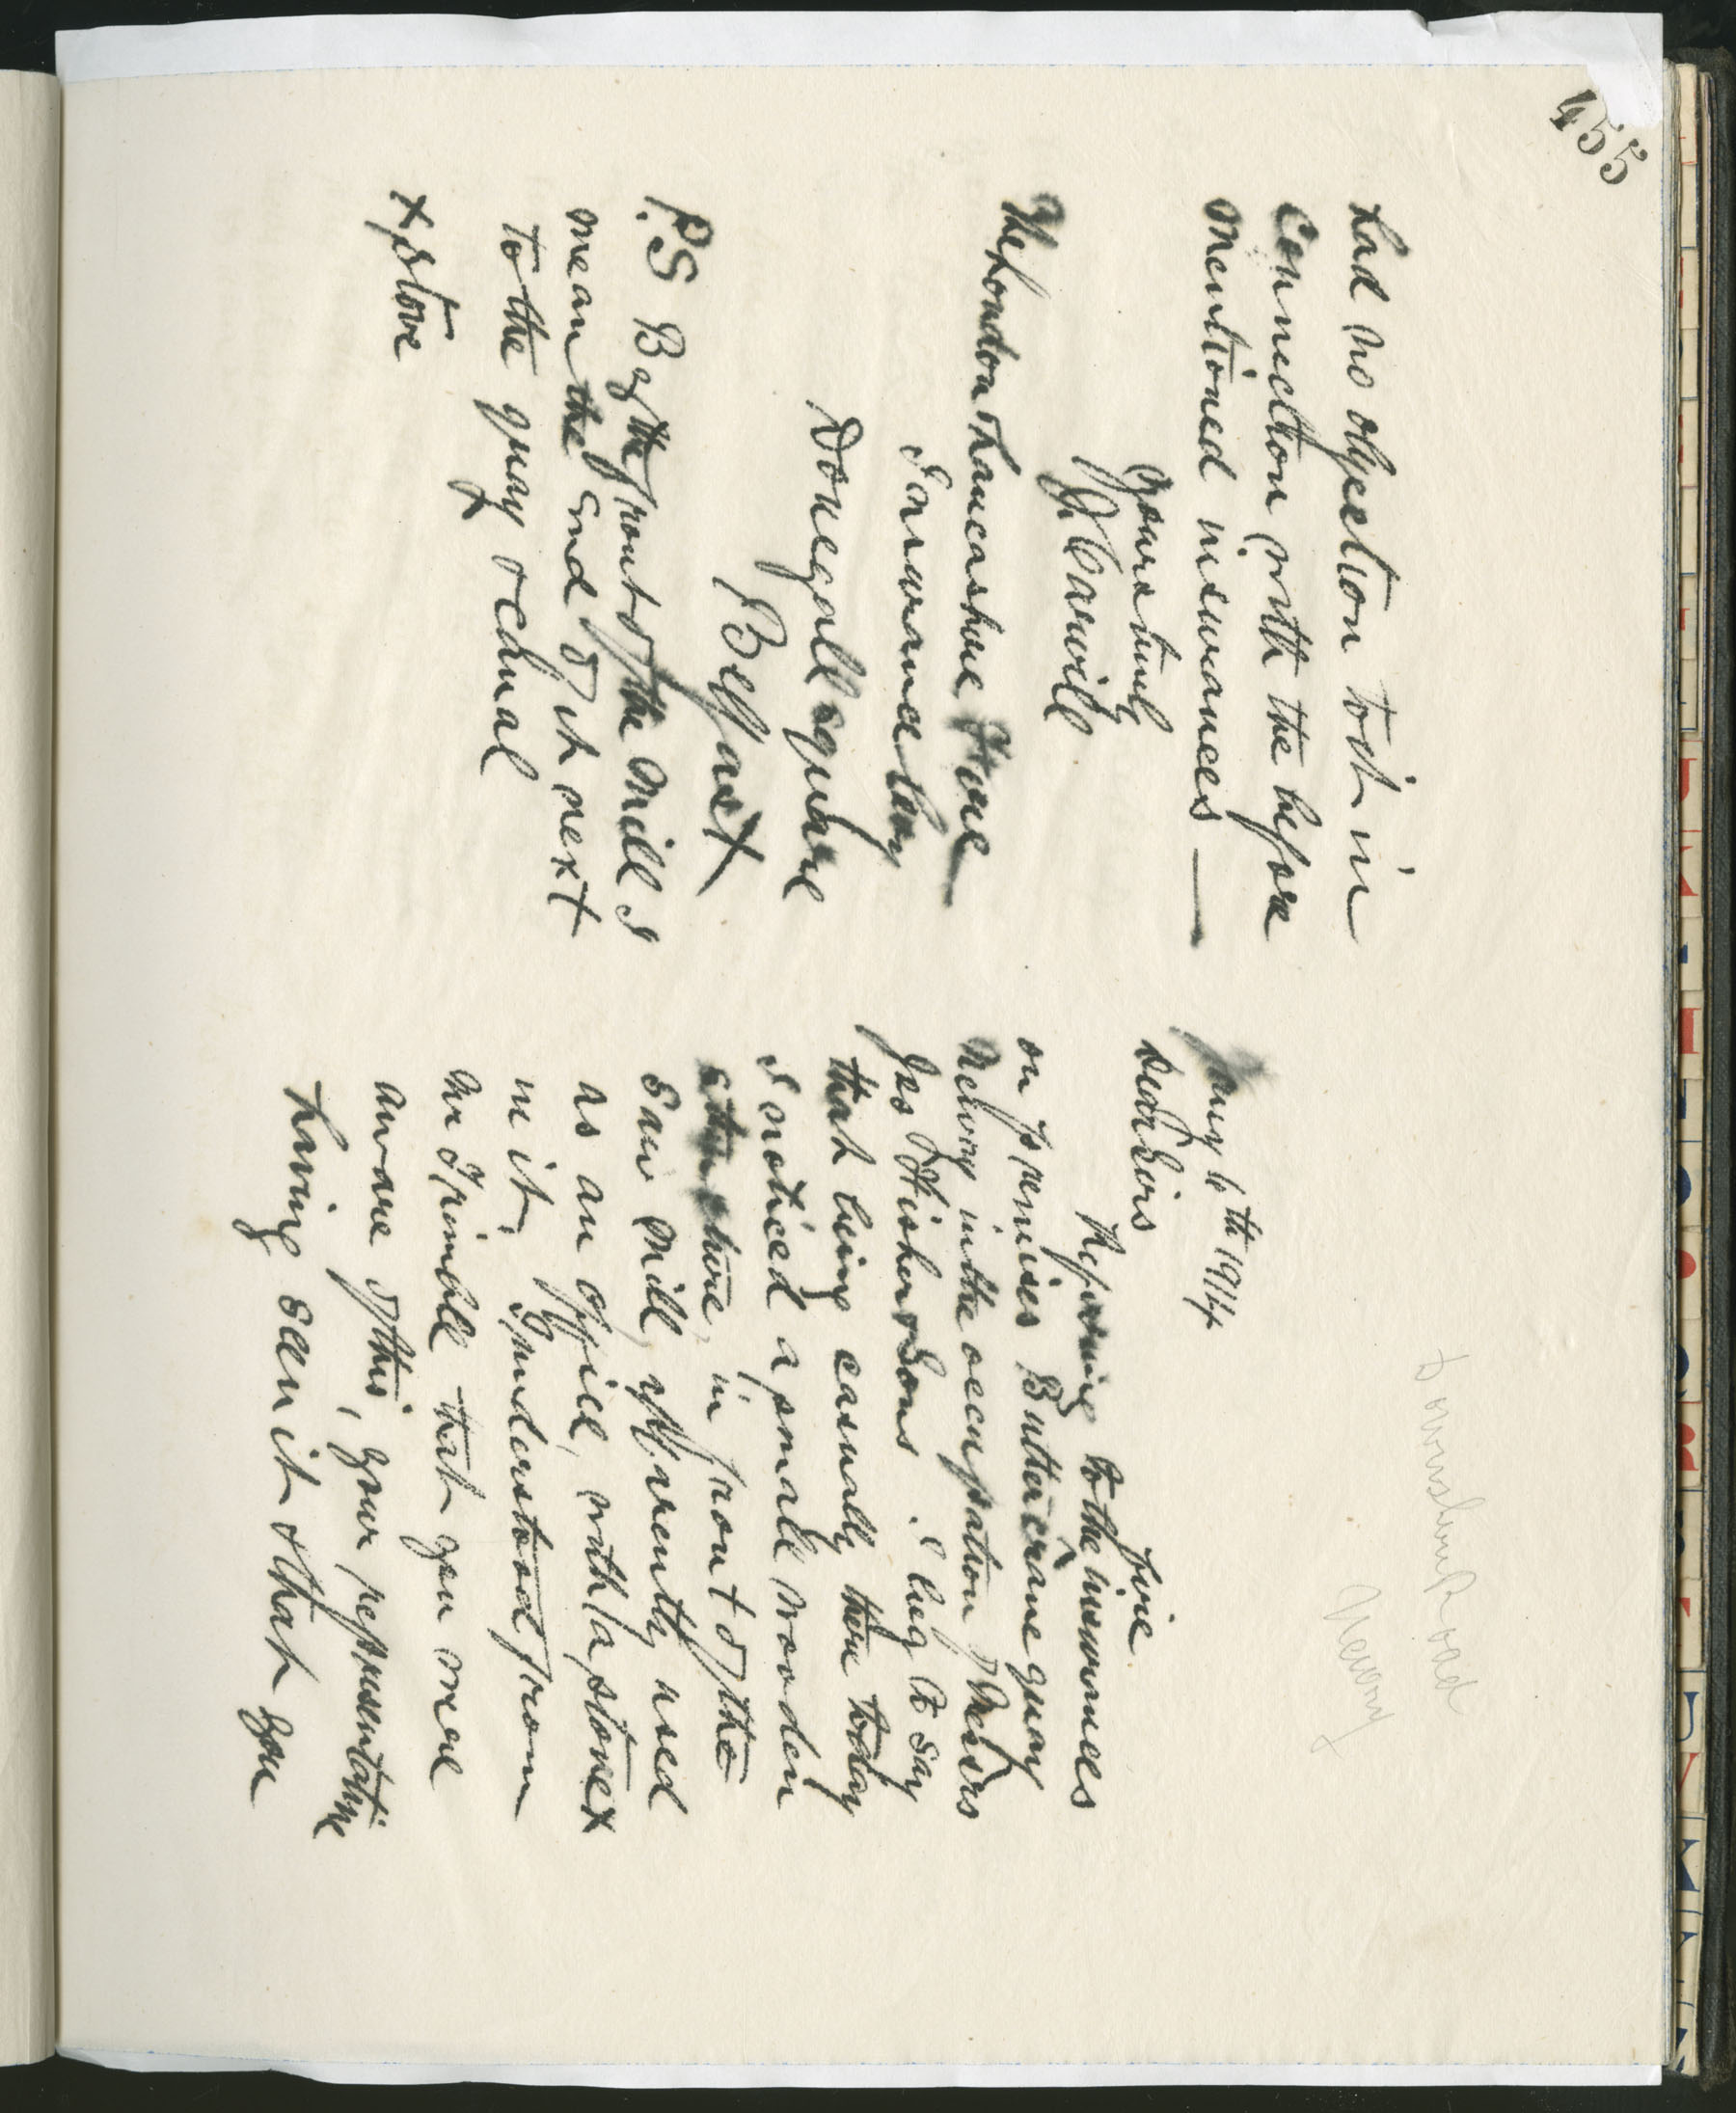 455
had no objection to it in
connection with the before
mentioned insurances —
Yours truly
J Carvill
The London & Lancashire Fire
Insurance Coy
Donegall Square
Belfast
P.S By the front of the mill I
mean the end of it next
to the quay & canal
x stove
May 6th 1914
Dear Sirs
Referring to the fire insurances
on premises Buttercrane quay
Newry in the occupation of Messrs
Jas Fisher & Sons. I beg to say
that being casually there today
I noticed a small wooden
structure, in front of the
saw mill, apparently used
as an office, with a stove x
in it, I understood from
Mr Trimble that you were
aware of this, your representative
having seen it & that you
Road
Newry